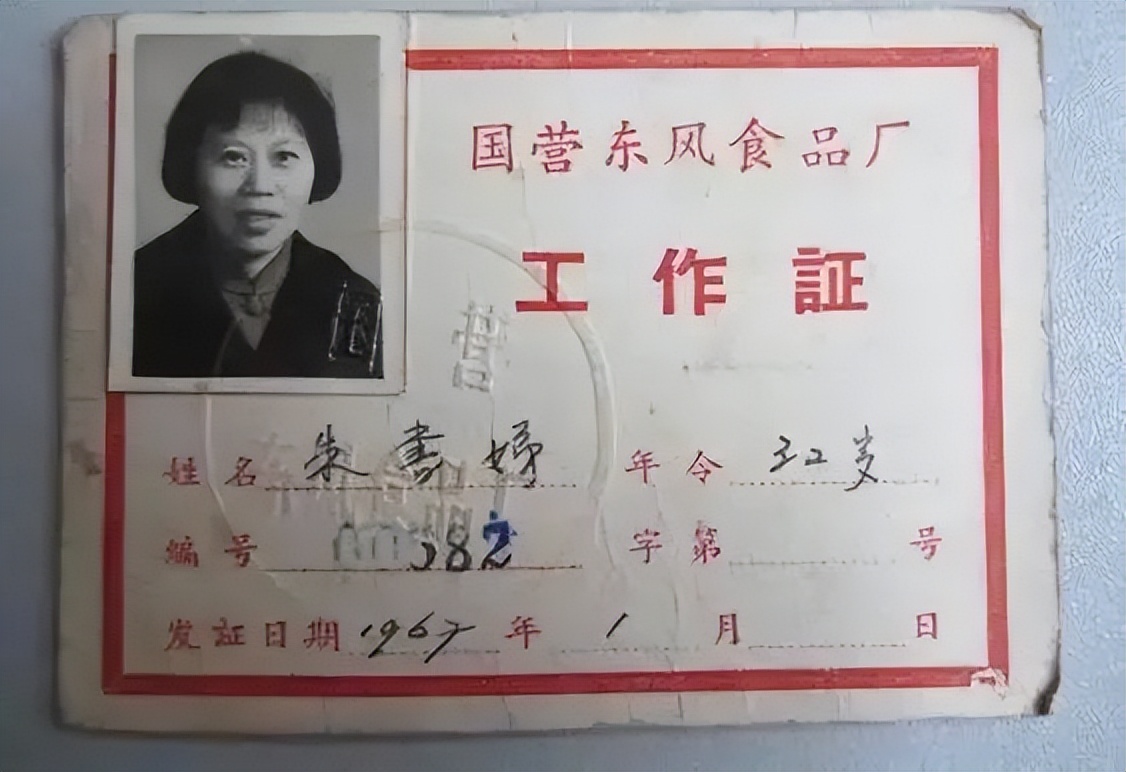 国营东风食品厂
工作証
姓名 朱 娣 年令 岁
编号 382 字第 号
发証日期 1967年1月 日